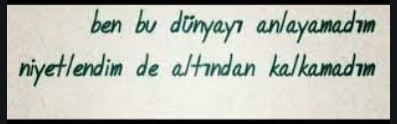 ben bu dünyayı anlayamadım
niyetlendim de altından kalkamadım